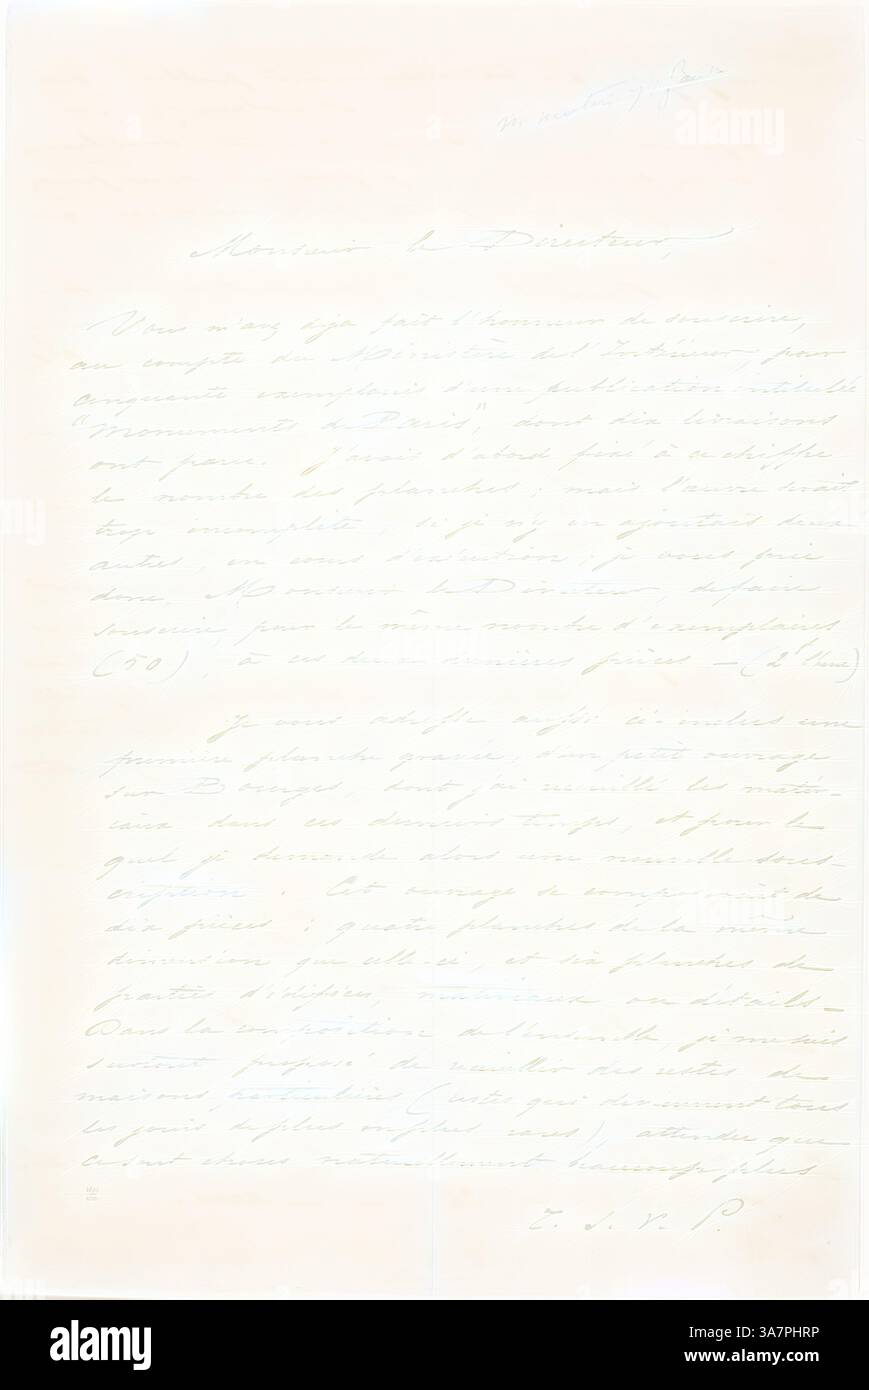 Monsieur le Directeur,
Vous m'avez déja fait l'honneur de souscrire,
au compte du Ministère de l'Intérieur, pour
cinquante exemplaires d'une publication intitulée
"Monuments de Paris", dont dix livraisons
ont paru. J'avais d'abord fixé à ce chiffre
le nombre des planches; mais l'œuvre serait
trop incomplète, si je n'y en ajoutais deux
autres, en cours d'exécution; je vous prie
donc, Monsieur le Directeur, de faire
souscrire, pour le même nombre d'exemplaires
(50), à ces deux dernières pièces —
Je vous adresse aussi ci-inclus une
première planche gravée, d'un petit ouvrage
sur Bourges, dont j'ai recueilli les matér-
iaux dans ces derniers temps, et pour le
quel je demande alors une nouvelle sous-
cription. Cet ouvrage se composerait de
dix pièces: quatre planches de la même
dimension que celle-ci, et six planches de
parties d'édifices, matériaux ou détails —
Dans la composition de l'ensemble, je me suis
surtout proposé de recueillir des restes de
maisons particulières (restes qui deviennent tous
les jours de plus en plus rares), attendu que
ce sont choses naturellement beaucoup plus
T. S. V. P.
alamy
Image ID: 3A7PHRP
www.alamy.com